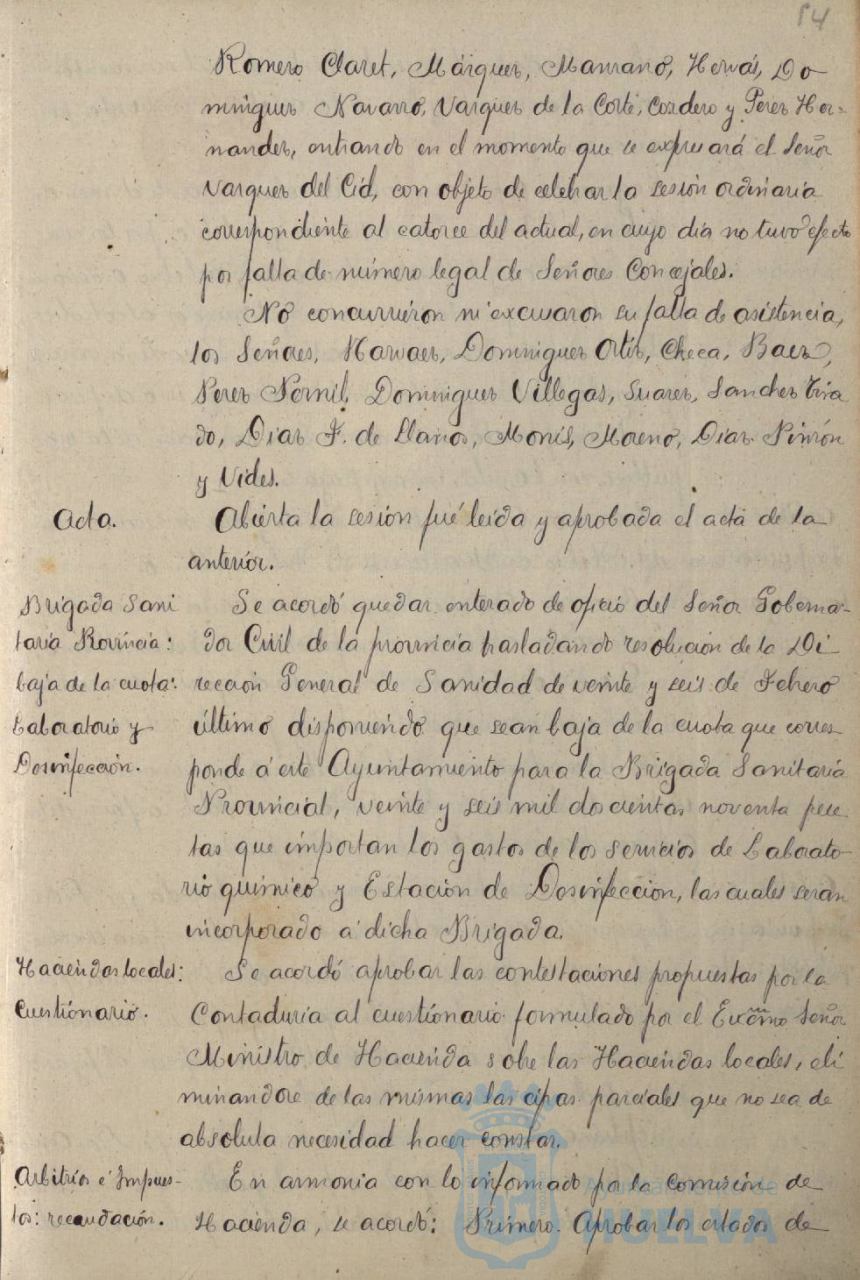 54
Romero Claret, Márquez, Manzano, Hervás, Do
minguez Navarro, Vazquez de la Corte, Cordero y Perez Her-
nandez, entrando en el momento que se expresará el Señor
Vazquez del Cid, con objeto de celebrar la sesión ordinaria
correspondiente al catorce del actual, en cuyo dia no tuvo efecto
por falta de número legal de Señores Concejales.
No concurrieron ni excusaron su falta de asistencia,
los Señores, Narvaez, Dominguez Ortiz, Checa, Baez,
Perez Pornil, Dominguez Villegas, Suarez, Sanchez Tira
do, Diaz F. de Llanos, Monís, Moreno, Diaz Pinzón
y Vides.
Acta.
Abierta la sesión fué leida y aprobada el acta de la
anterior.
Brigada Sani
taria Provincia:
baja de la cuota:
Laboratorio y
Desinfección.
Se acordó quedar enterado de oficio del Señor Goberna-
dor Civil de la provincia trasladando resolución de la Di
rección General de Sanidad de veinte y seis de Febrero
último disponiendo que sean baja de la cuota que corres
ponde á este Ayuntamiento para la Brigada Sanitaria
Provincial, veinte y seis mil doscientas noventa pese
tas que importan los gastos de los servicios de Laborato-
rio químico y Estación de Desinfeccion, las cuales seran
incorporado a dicha Brigada.
Haciendas locales:
Cuestionario.
Se acordó aprobar las contestaciones propuestas por la
Contaduria al cuestionario formulado por el Excmo Señor
Ministro de Hacienda sobre las Haciendas locales, eli
minandose de las mismas las cifras parciales que no sea de
absoluta necesidad hacer constar.
Arbitrios é Impues-
tos: recaudación.
En armonia con lo informado por la Comisión de
Hacienda, se acordó: Primero. Aprobar los estados de
Ayuntamiento de
HUELVA